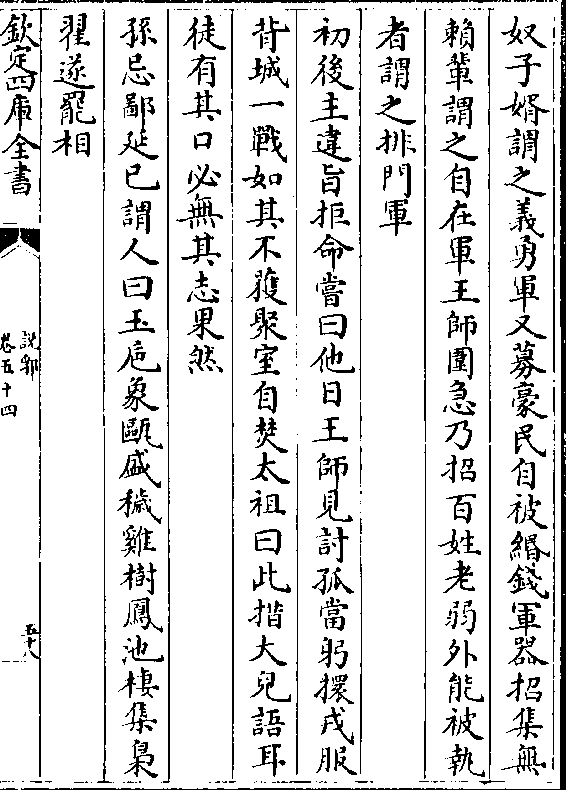 奴子婿謂之義勇軍又募豪民自被緡錢軍器招集無
賴輩謂之自在軍王師圍急乃招百姓老弱外能被執
者謂之排門軍
初後主違旨拒命嘗曰他日王師見討孤當躬擐戎服
背城一戰如其不獲聚室自焚太祖曰此措大兒語耳
徒有其口必無其志果然
孫忌鄙延巳謂人曰玉巵象甌盛穢雞樹鳳池棲集梟
翟遂罷相
欽定四庫全書
說郛
卷五十四
五十八